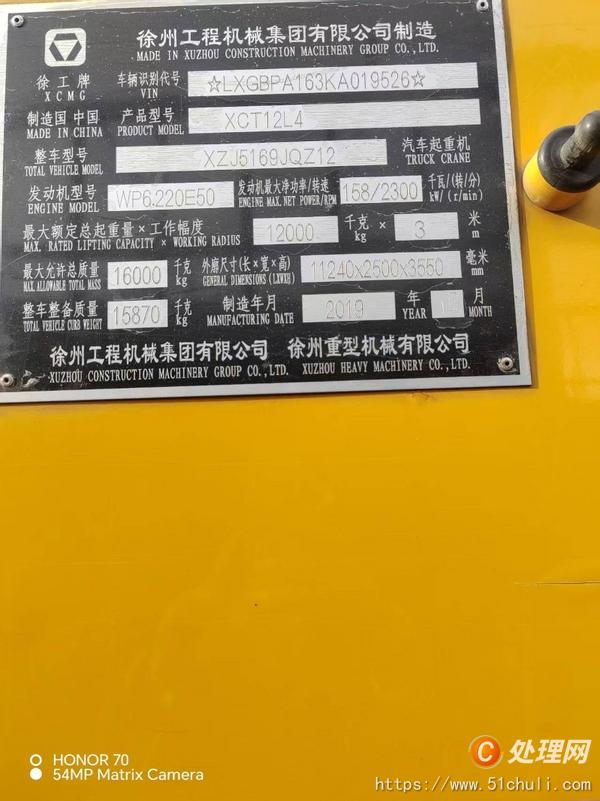 徐州工程机械集团有限公司制造
MADE IN XUZHOU CONSTRUCTION MACHINERY GROUP CO.,LTD.
徐工牌 车辆识别代号 ☆LXGBPA163KA019526☆
XCMG VIN
制造国 中国 产品型号 XCT12L4
MADE IN CHINA PRODUCT MODEL
整车型号 XZJ5169JQZ12 汽车起重机
TOTAL VEHICLE MODEL TRUCK CRANE
发动机型号 WP6.220E50 发动机最大净功率/转速 158/2300 千瓦/(转/分)
ENGINE MODEL ENGINE MAX.NET POWER/RPM kW/(r/min)
最大额定总起重量×工作幅度 12000 千克 × 3 米
MAX. RATED LIFTING CAPACITY × WORKING RADIUS kg m
最大允许总质量 16000 千克 外廓尺寸(长×宽×高) 11240x2500x3550 毫米
MAX ALLOWABLE TOTAL MASS kg GENERAL DIMENSIONS (LXWXH) mm
整车整备质量 15870 千克 制造年月 2019 年 月
TOTAL VEHICLE CURB WEIGHT kg MANUFACTURING DATE YEAR MONTH
徐州工程机械集团有限公司 徐州重型机械有限公司
XUZHOU CONSTRUCTION MACHINERY GROUP CO.,LTD. XUZHOU HEAVY MACHINERY CO.,LTD.
HONOR 70
54MP Matrix Camera
C 处理网
https://www.51chuli.com/